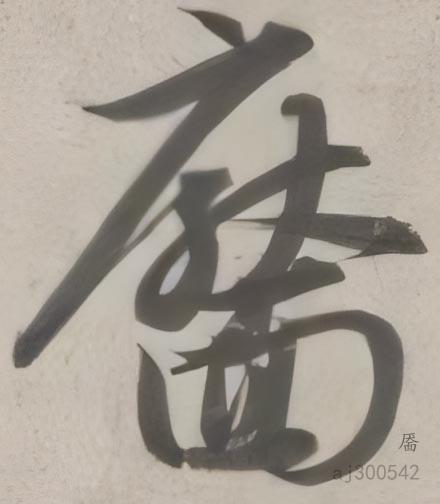 廧
aj300542